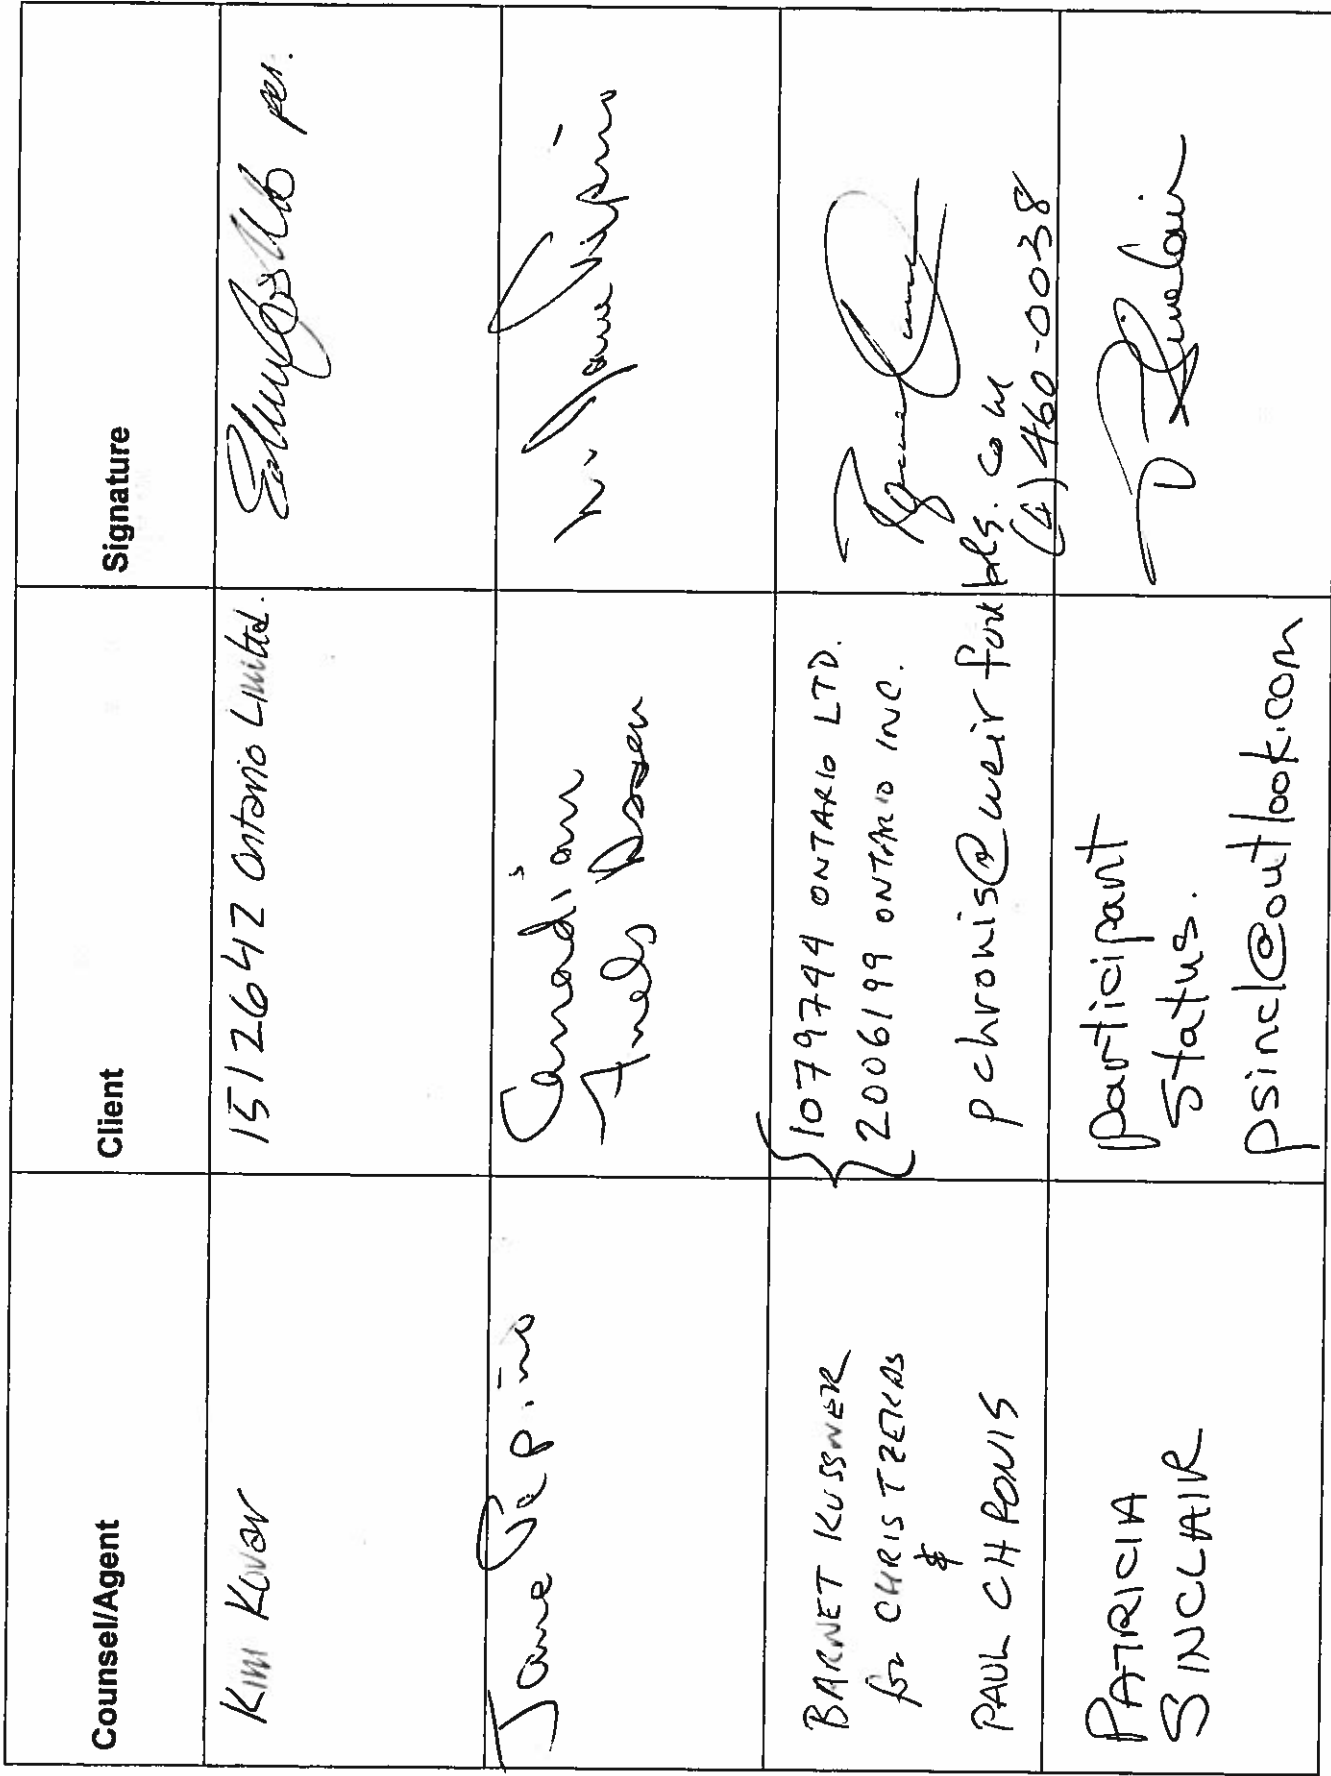 Counsel/Agent Client Signature
Kim Kovar 1512642 Ontario Limited. per.
Jane Pepino Canadian
BARNET KUSSNER
for CHRIS TZEKAS
&
PAUL CHRONIS
{1079744 ONTARIO LTD.
{2006199 ONTARIO INC.
pchronis@weirfoulds.com
(4)460-0038
PATRICIA
SINCLAIR
participant
status.
psincl@outlook.com
P Sinclair